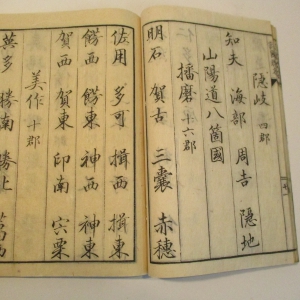 隠岐 四郡
知夫 海部 周吉 隠地
山陽道八箇國
播磨 六郡
明石 賀古 三嚢 赤穂
佐用 多可 揖西 揖東
餝西 餝東 神西 神東
賀西 賀東 印南 宍粟
美作 十郡
英多 勝南 勝北